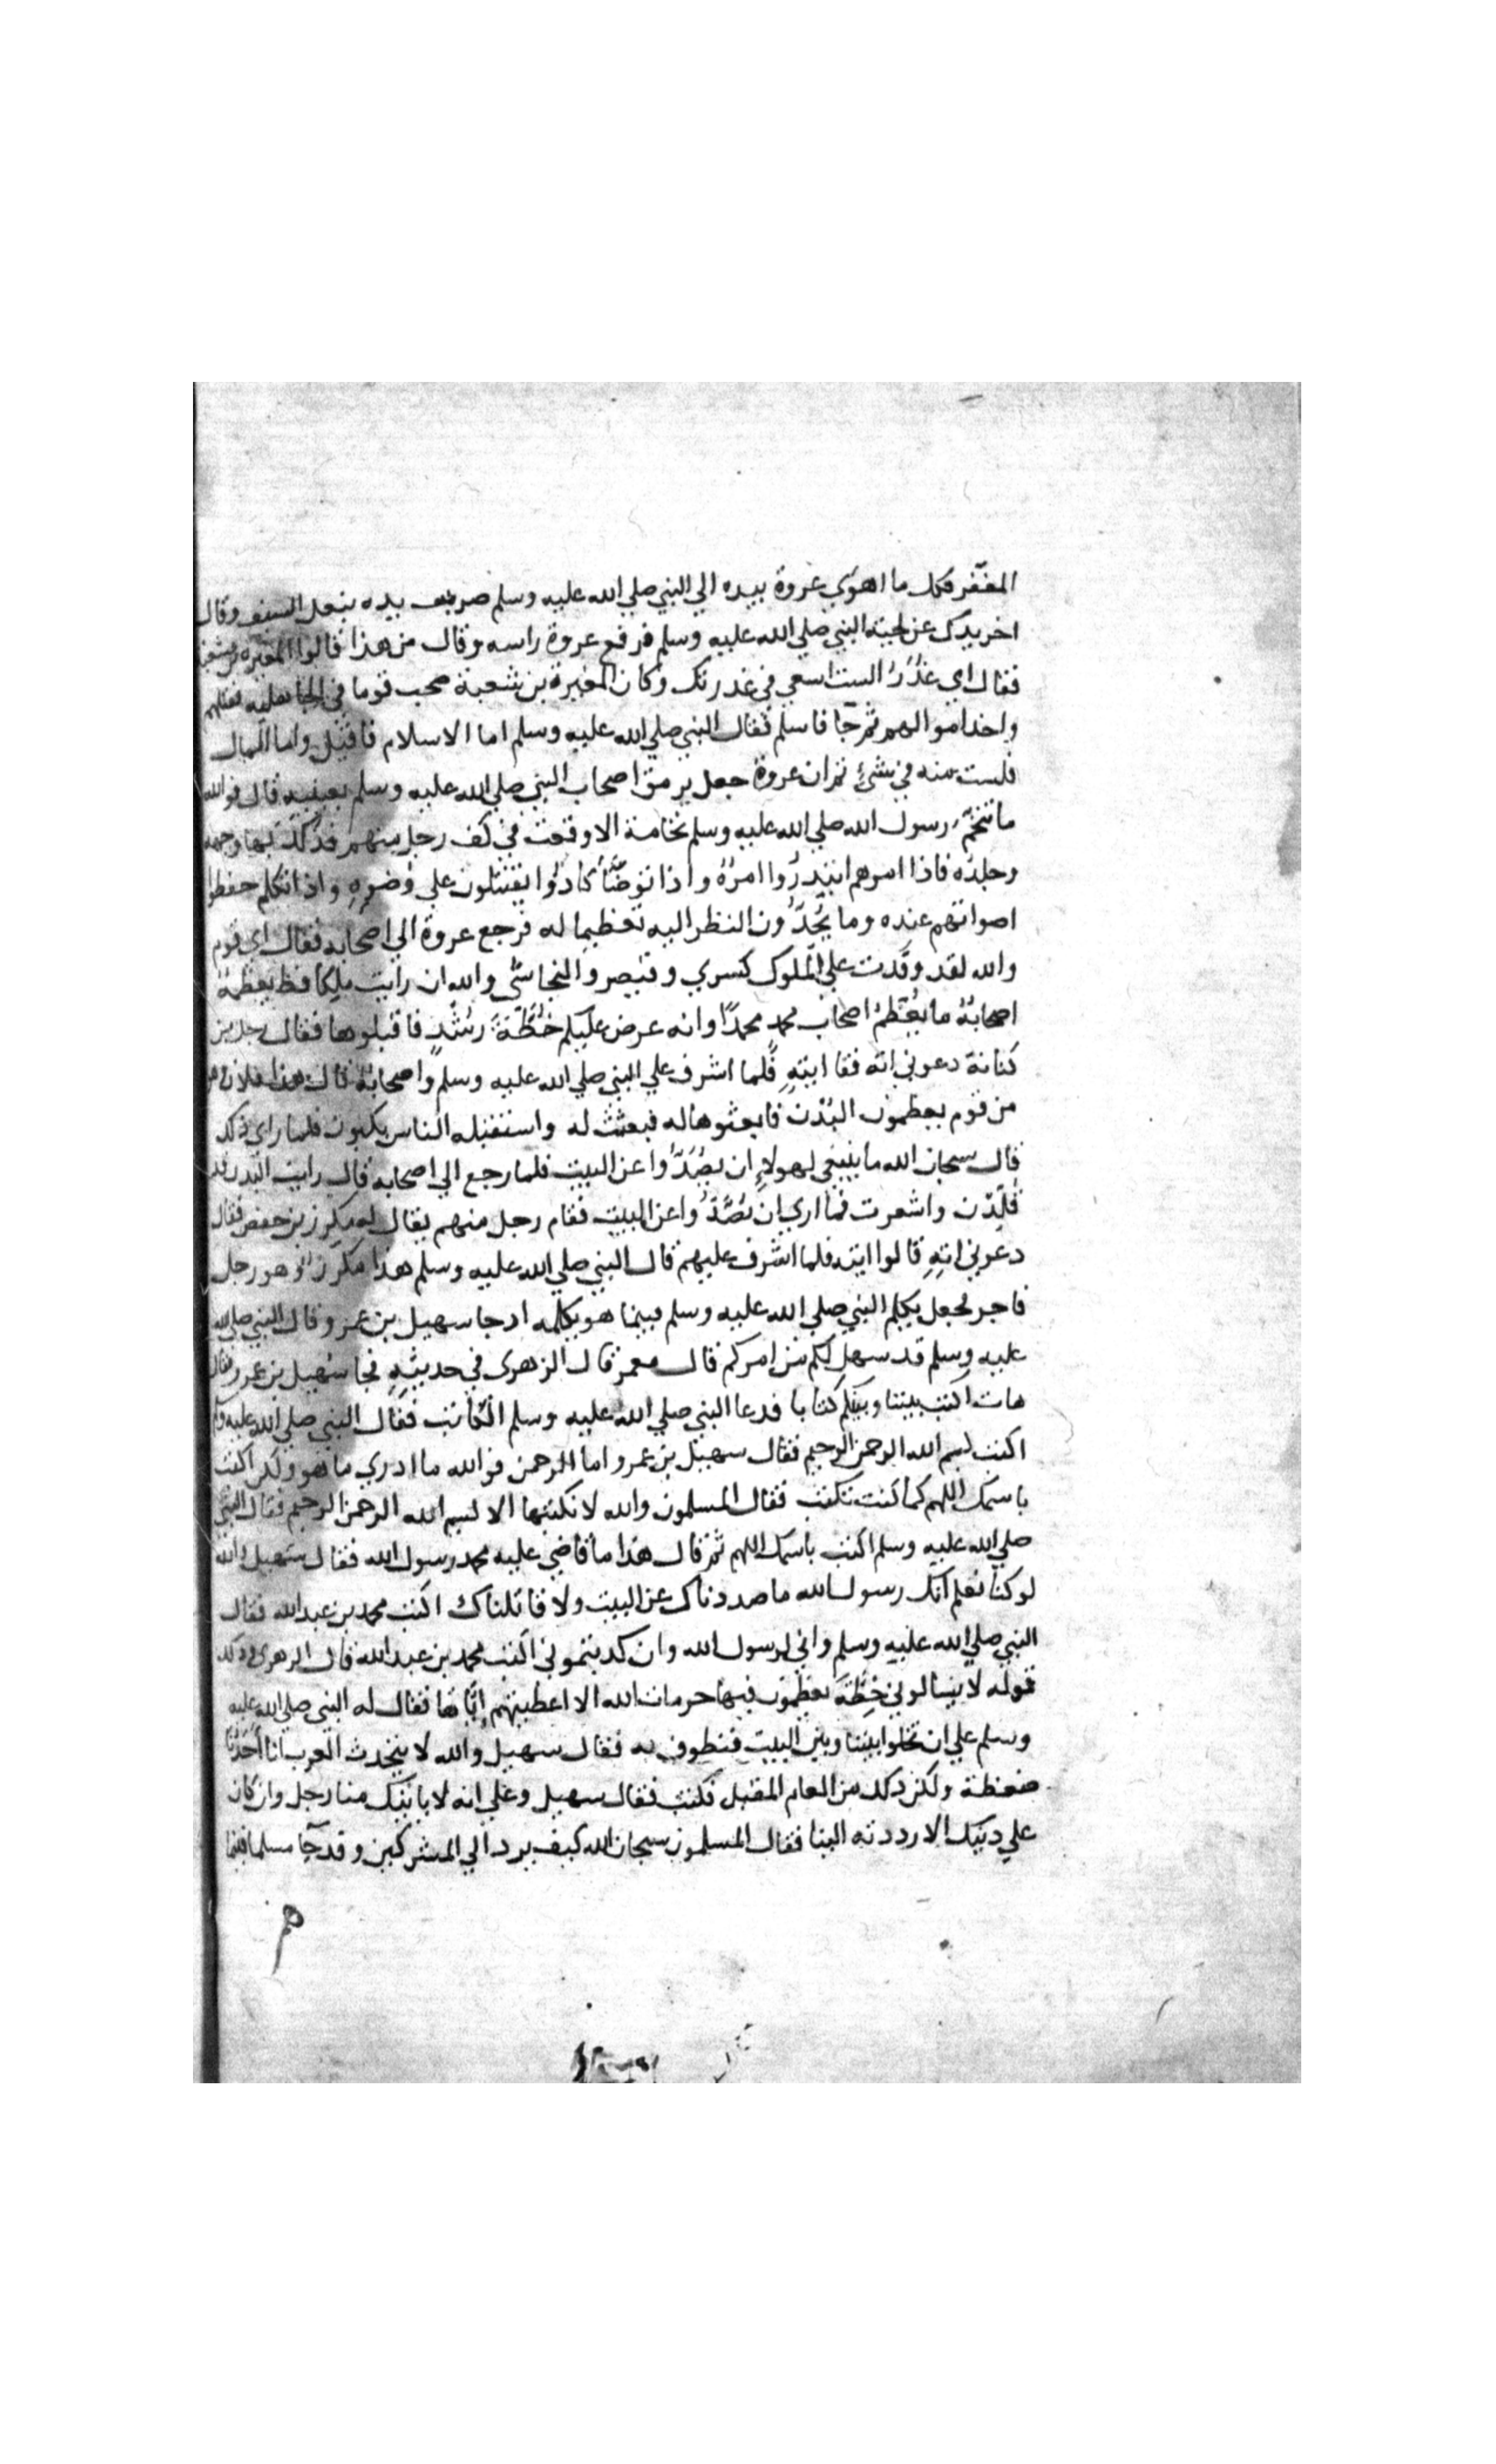 المغفر فكل ما اهوى عروة بيده الي النبي صلي الله عليه وسلم ضرب يده بنعل السيف وقال
اخر يدك عن لحية النبي صلي الله عليه وسلم فرفع عروة راسه وقال من هذا قالوا المغيرة بن شعبة
فقال اي غُدَرُ الست اسعي في غدرتك وكان المغيرة بن شعبة صحب قوما في الجاهلية فقتلهم
واخذ اموالهم ثم جآ فاسلم فقال النبي صلي الله عليه وسلم اما الاسلام فاقبل واما المال
فلست منه في شيءٍ ثم ان عروة جعل يرمق اصحاب النبي صلي الله عليه وسلم بعينيه قال فوالله
ما تنخم رسول الله صلي الله عليه وسلم نخامة الا وقعت في كف رجل منهم فدلك بها وجهه
وجلده فاذا امرهم ابتدرُوا امرهُ واذا توضّأ كادُوا يقتتلون علي وضوءِهِ واذا تكلم خفضوا
اصواتهم عنده وما يُحِدُّون النظر اليه تعظيما له فرجع عروة الي اصحابه فقال اي قوم
والله لقد وفدت علي الملوك كسري وقيصر والنجاشي والله ان رايت ملكا قط يعظمهُ
اصحابُهُ ما يُعظمُ اصحاب محمدٍ محمدًا وانه عرض عليكم خُطَّةَ رُشدٍ فاقبلوها فقال رجل من
كنانة دعوني اته فقا ايتِهِ فلما اشرف علي النبي صلي الله عليه وسلم واصحابه قال هذا فلان وهو
من قوم يعظمون البُدْن فابعثوها له فبعثت له واستقبله الناس يلبون فلما راي ذلك
قال سبحان الله ما ينبغي لهولاءِ ان يُصَدُّوا عن البيت فلما رجع الي اصحابه قال رايت البدن قد
قُلِّدن واشعرت فما اري ان يُصَدُّوا عن البيت فقام رجل منهم يقال له مكرز بن حفص فقال
دعوني اتِهِ قالوا ايته فلما اشرف عليهم قال النبي صلي الله عليه وسلم هذا مكرزٌ وهو رجل
فاجر فجعل يكلم النبي صلي الله عليه وسلم فبينما هو يكلمه اد جا سهيل بن عمرو قال النبي صلي الله
عليه وسلم قد سهل لكم من امركم قال معمر قال الزهري في حديثه فجا سُهيل بن عمرو فقال
هات اكتب بيننا وبينكم كتابا فدعا النبي صلي الله عليه وسلم الكاتب فقال النبي صلي الله عليه وسلم
اكتب بسم الله الرحمن الرحيم فقال سهيل بن عمرو اما الرحمن فوالله ما ادري ما هو ولكن اكتب
باسمك اللهم كما كنت تكتب فقال المسلمون والله لا نكتبها الا بسم الله الرحمن الرحيم فقال النبي
صلي الله عليه وسلم اكتب باسمك اللهم ثم قال هذا ما قاضي عليه محمد رسول الله فقال سُهيل والله
لو كنا نعلم انك رسول الله ما صددناك عن البيت ولا قاتلناك اكتب محمد بن عبد الله فقال
النبي صلي الله عليه وسلم واني لرسول الله وان كدبتموني اكتب محمد بن عبد الله قال الزهري ودلك
قوله لا يسالوني خطَّةَ يعظمون فيها حرمات الله الا اعطيتهم إيّاها فقال له النبي صلي الله عليه
وسلم علي ان تخلوا بيننا وبين البيت فنطوف به فقال سهيل والله لا يتحدث العرب انا أُخِدْنا
ضغطة ولكن دلك من العام المقبل فكتب فقال سهيل وعلي انه لا ياتيك منا رجل وان كان
علي دينك الا رددته الينا فقال المسلمون سبحان الله كيف يرد الي المشركين وقد جآ مسلما فبينما
هم